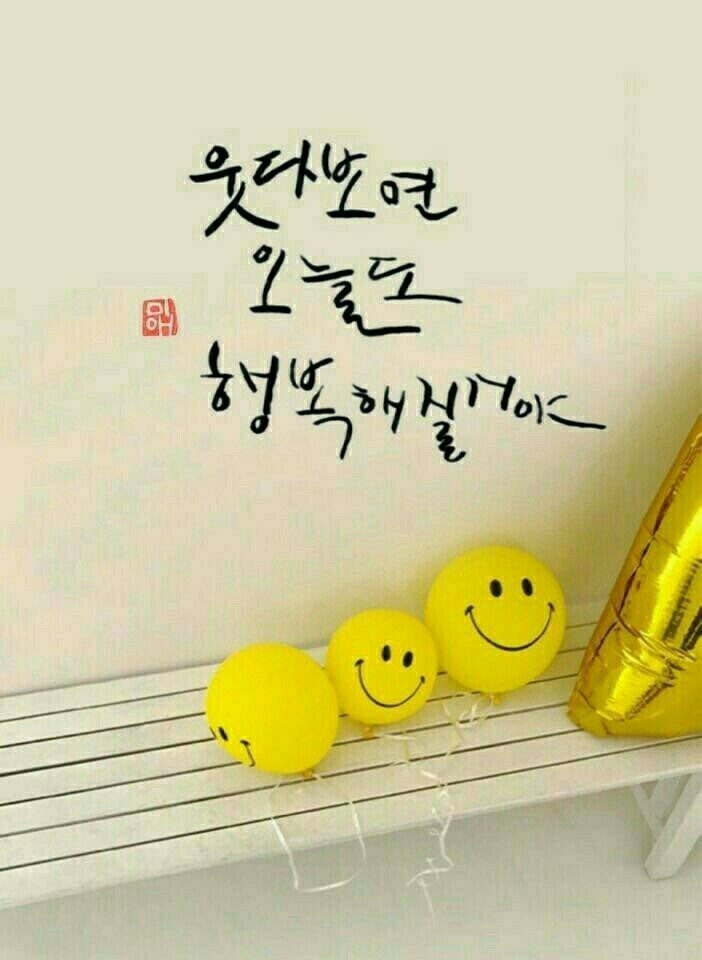 웃다보면
오늘도
행복해질거야
미애